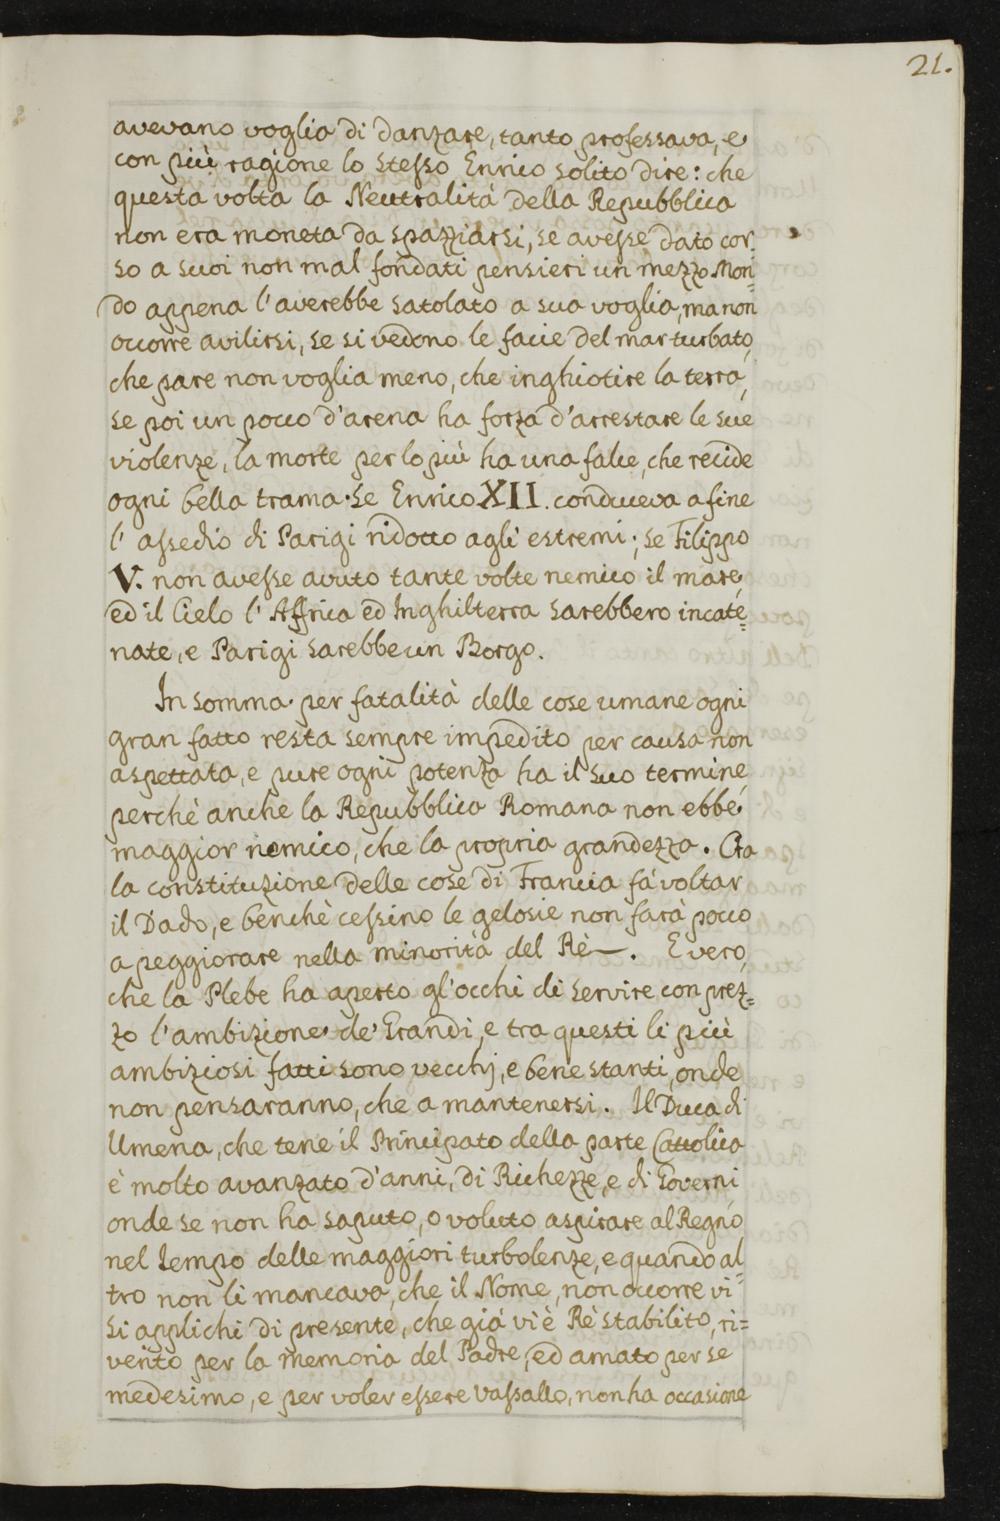 21.
avevano voglia di danzare, tanto professava, e
con più ragione lo stesso Enrico solito dire: che
questa volta la Neutralità della Repubblica
non era moneta da spazziarsi, se avesse dato cor=
so a suoi non mal fondati pensieri un mezzo Mon=
do appena l'averebbe satolato a sua voglia, ma non
occorre avilirsi, se si vedono le facie del mar turbato,
che pare non voglia meno, che inghiotire la terra,
se poi un pocco d'arena ha forza d'arrestare le sue
violenze, la morte per lo più ha una falce, che recide
ogni bella trama. Se Enrico XII. conduceva a fine
l'assedio di Parigi ridotto agli estremi; se Filippo
V. non avesse avuto tante volte nemico il mare,
ed il Cielo l'Affrica ed Inghilterra sarebbero incate=
nate, e Parigi sarebbe un Borgo.
In somma per fatalità delle cose umane ogni
gran fatto resta sempre impedito per causa non
aspettata, e pure ogni potenza ha il suo termine,
perchè anche la Repubblica Romana non ebbe
maggior nemico, che la propria grandezza. Ora
la constituzione delle cose di Francia fà voltar
il Dado, e benchè cessino le gelosie non farà pocco
a peggiorare nella minorità del Rè. E vero,
che la Plebe ha aperto gl'occhi di servire con prez=
zo l'ambizione de' Grandi, e tra questi li più
ambiziosi fatti sono vecchj, e bene stanti, onde
non pensaranno, che a mantenersi. Il Duca di
Umena, che tene il Principato della parte Cattolica
è molto avanzato d'anni, di Richezze, e di Governi,
onde se non ha saputo, o voluto aspirare al Regno
nel tempo delle maggiori turbolenze, e quando al=
tro non li mancava, che il Nome, non occorre vi
si applichi di presente, che già vi è Rè stabilito, ri=
verito per la memoria del Padre, ed amato per se
medesimo, e per voler essere vassallo, non ha occasione